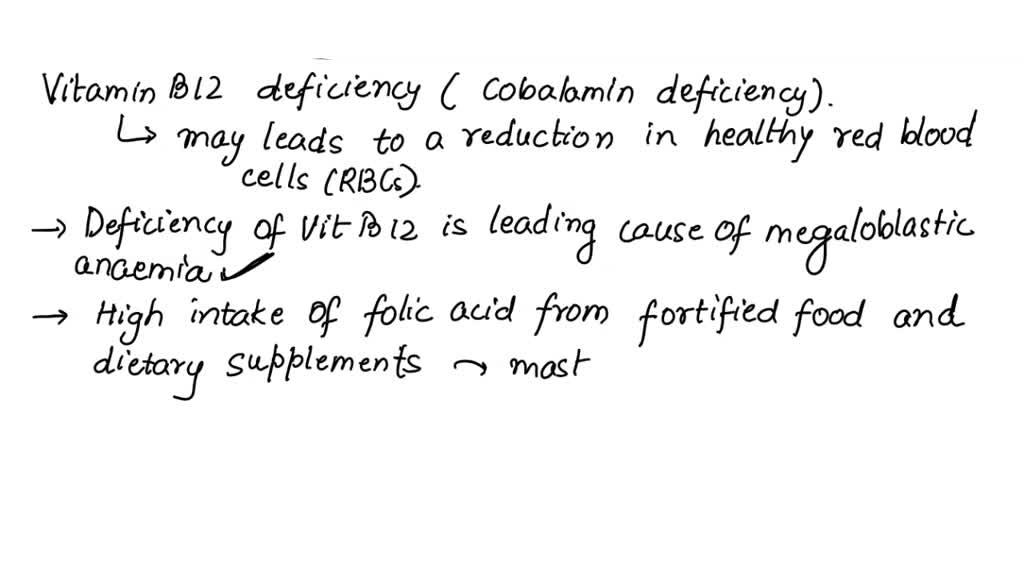 Vitamin B12 deficiency ( cobalamin deficiency).
↳ may leads to a reduction in healthy red blood
cells (RBCs).
→ Deficiency of Vit B12 is leading cause of megaloblastic
anaemia ✓
→ High intake of folic acid from fortified food and
dietary supplements → mast